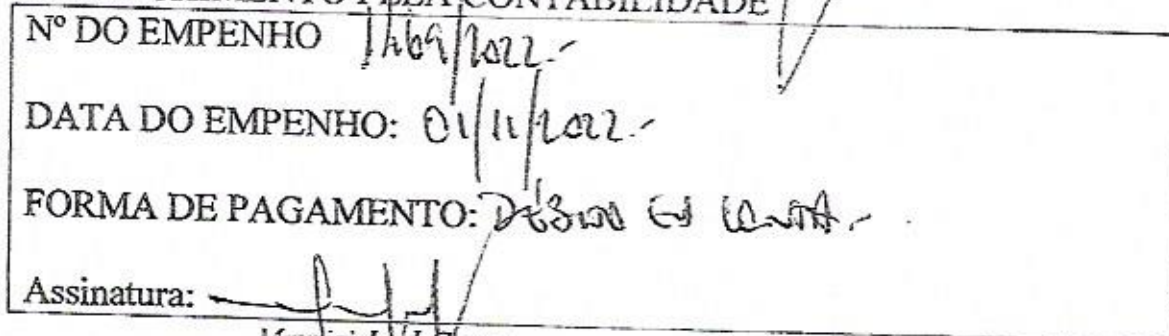 PELA CONTABILIDADE
Nº DO EMPENHO 1469/2022.-
DATA DO EMPENHO: 01/11/2022.-
FORMA DE PAGAMENTO: DÉBITO EM CONTA.-
Assinatura: